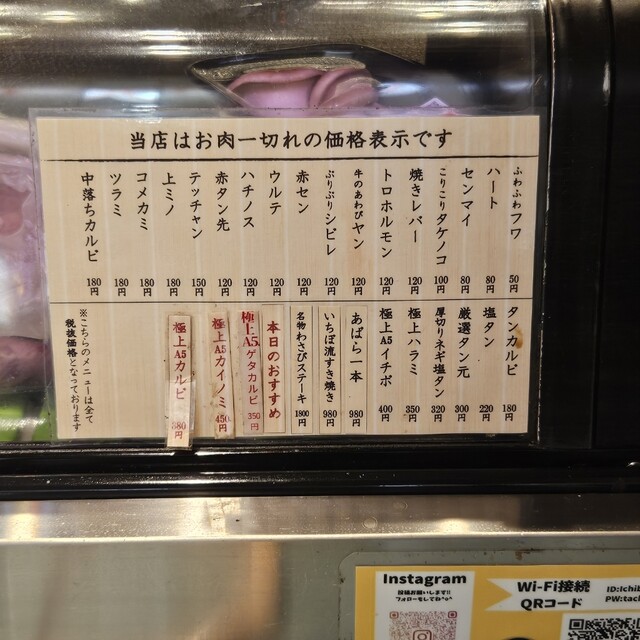 当店はお肉一切れの価格表示です
ふわふわフワ 50円
ハート 80円
センマイ 80円
こりこりタケノコ 100円
焼きレバー 120円
トロホルモン 120円
牛のあわびヤン 120円
ぷりぷりシビレ 120円
赤セン 120円
ウルテ 120円
ハチノス 120円
赤タン先 120円
テッチャン 150円
上ミノ 180円
コメカミ 180円
ツラミ 180円
中落ちカルビ 180円
タンカルビ 180円
塩タン 220円
厳選タン元 300円
厚切りネギ塩タン 320円
極上ハラミ 350円
極上A5イチボ 400円
あばら一本 980円
いちぼ流すき焼き 980円
名物わさびステーキ 1800円
本日のおすすめ
極上A5ゲタカルビ 350円
極上A5カイノミ 450円
極上A5カルビ 380円
※こちらのメニューは全て
税抜価格となっております
Instagram
投稿お願いします!!
フォローもしてね^o^
Wi-Fi接続
QRコード
ID:Ichib
PW:tach